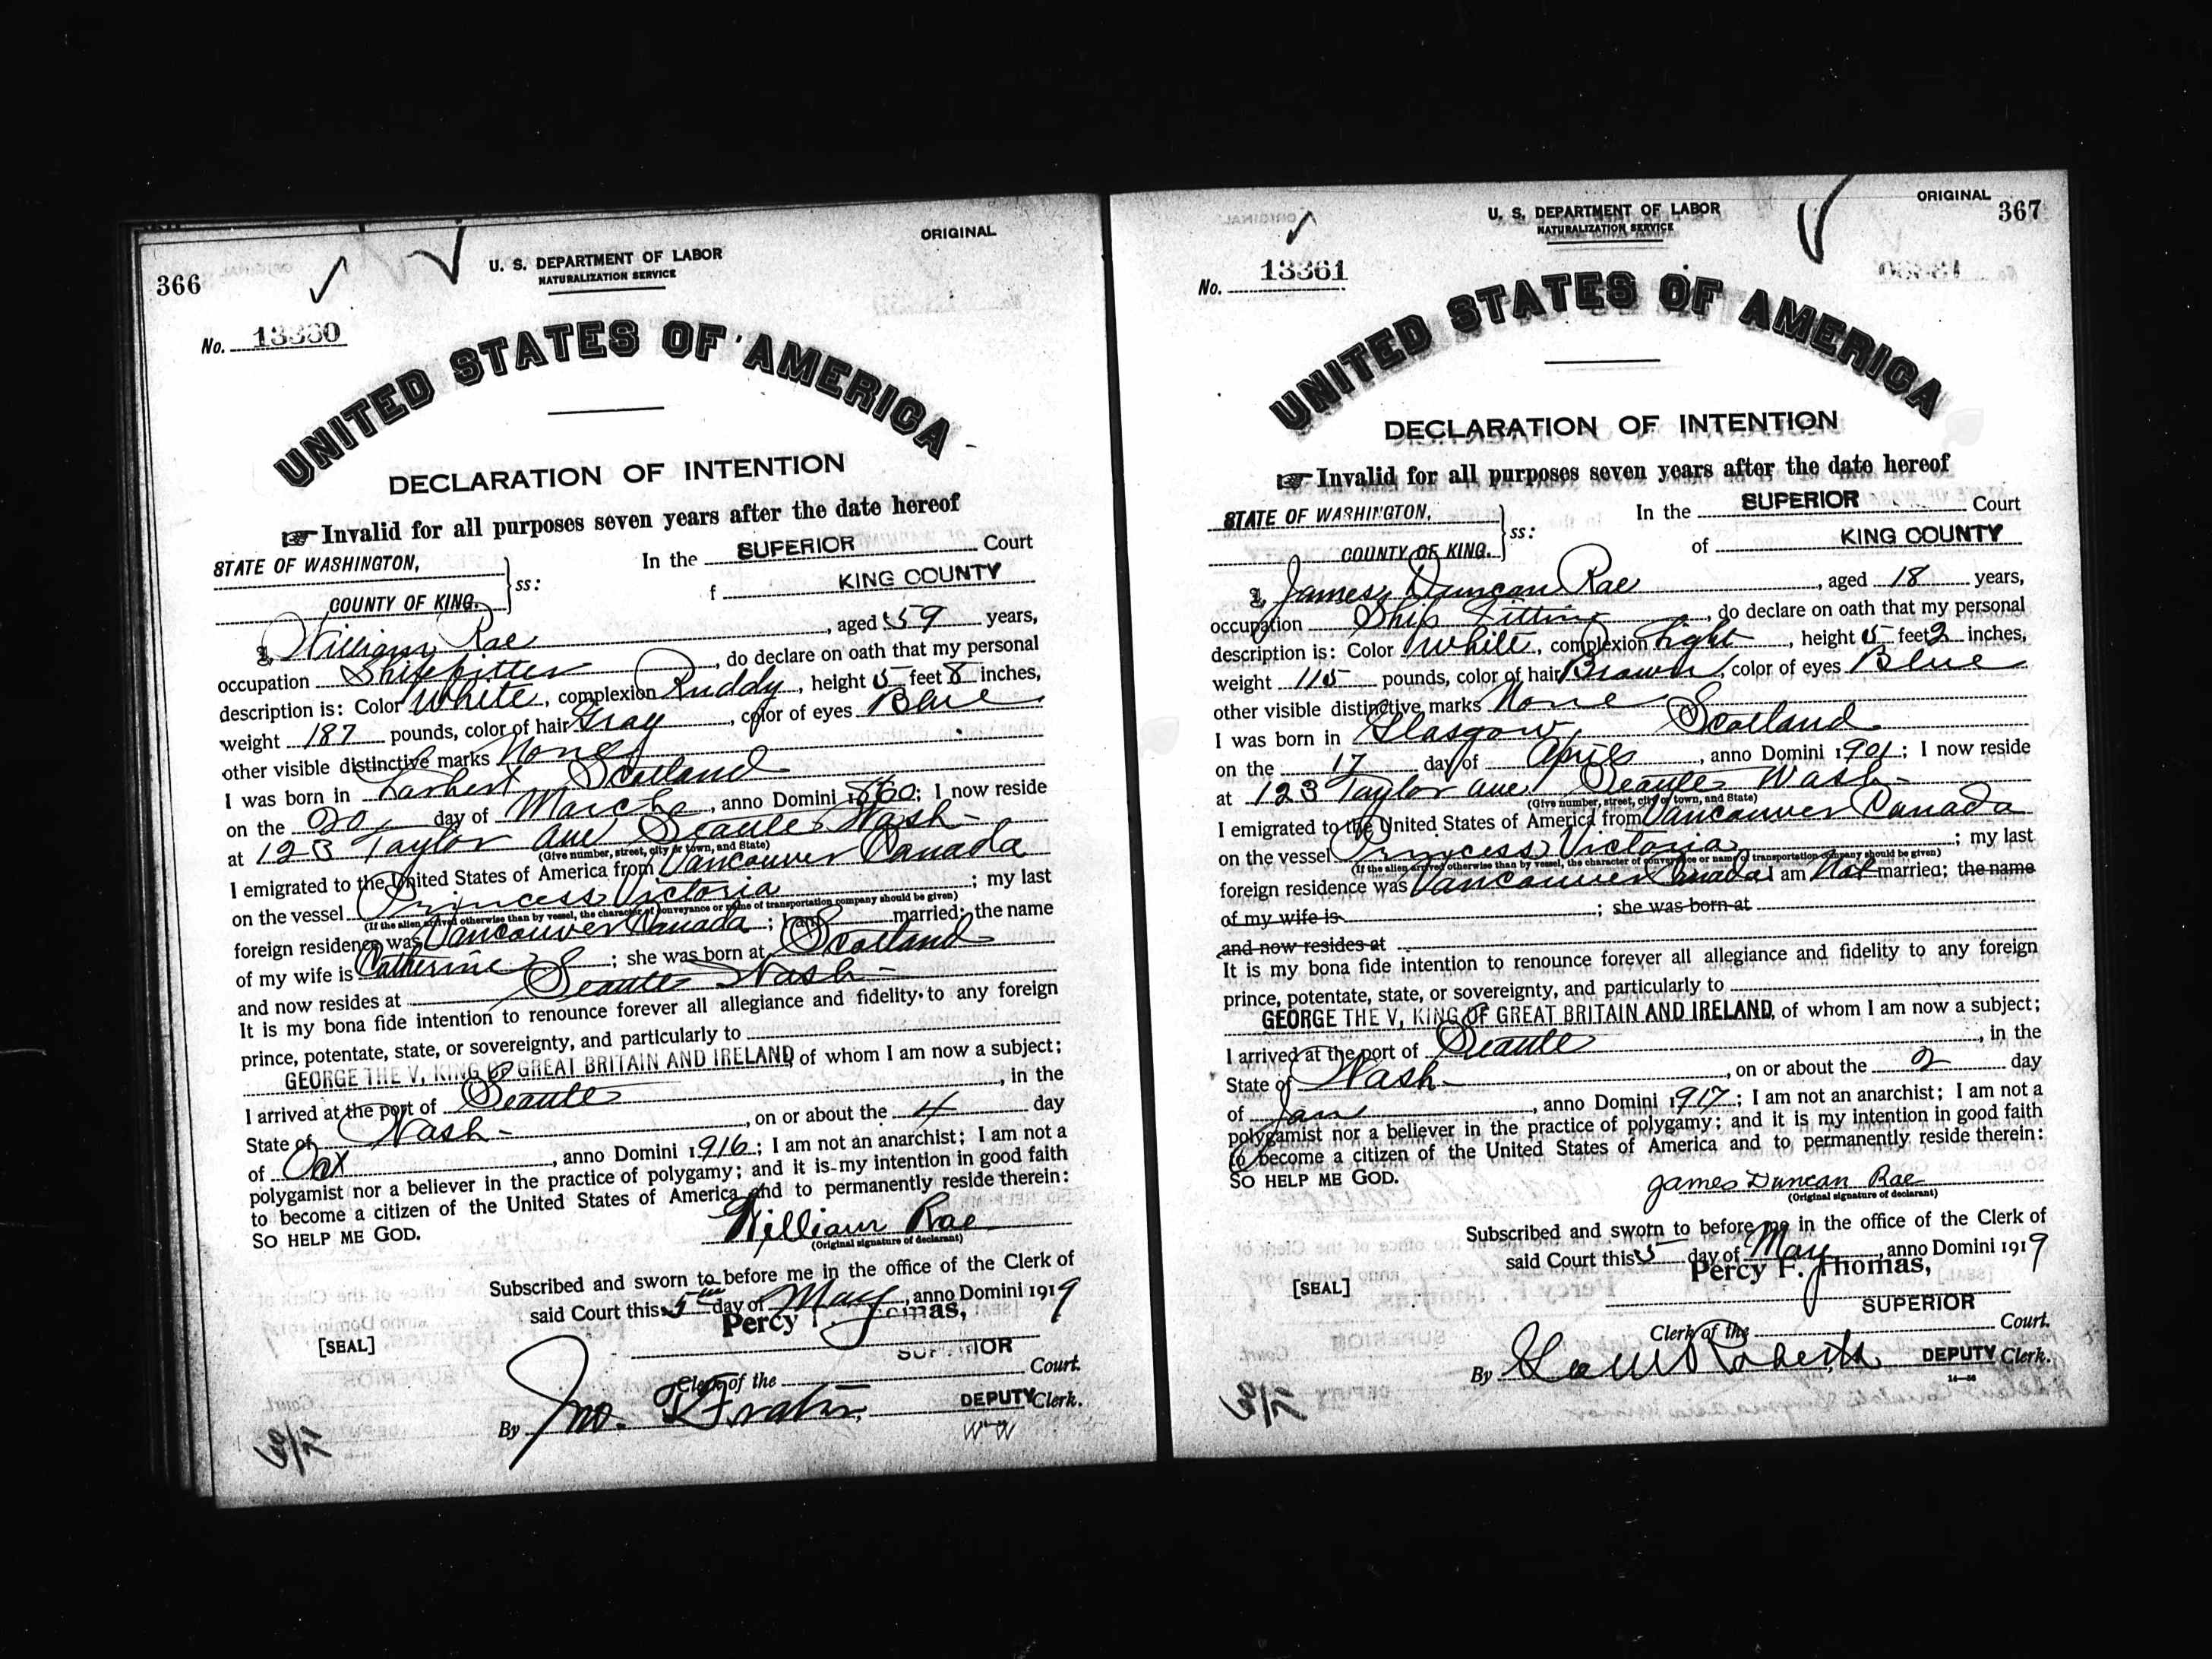 366
ORIGINAL
U. S. DEPARTMENT OF LABOR
NATURALIZATION SERVICE
No. 13360
UNITED STATES OF AMERICA
DECLARATION OF INTENTION
☞ Invalid for all purposes seven years after the date hereof
STATE OF WASHINGTON, ss: In the SUPERIOR Court
COUNTY OF KING. f KING COUNTY
I, William Rae, aged 59 years,
occupation Shipfitter, do declare on oath that my personal
description is: Color White, complexion Ruddy, height 5 feet 8 inches,
weight 187 pounds, color of hair Gray, color of eyes Blue
other visible distinctive marks None
I was born in Larbert Scotland
on the 20 day of March, anno Domini 1860; I now reside
at 123 Taylor ave Seattle Wash-
(Give number, street, city or town, and State)
I emigrated to the United States of America from Vancouver Canada
on the vessel Princess Victoria; my last
(If the alien arrived otherwise than by vessel, the character of conveyance or name of transportation company should be given)
foreign residence was Vancouver Canada; I am married; the name
of my wife is Catherine; she was born at Scotland
and now resides at Seattle Wash-
It is my bona fide intention to renounce forever all allegiance and fidelity to any foreign
prince, potentate, state, or sovereignty, and particularly to
GEORGE THE V, KING OF GREAT BRITAIN AND IRELAND, of whom I am now a subject;
I arrived at the port of Seattle, in the
State of Wash-, on or about the 4 day
of Oct, anno Domini 1916; I am not an anarchist; I am not a
polygamist nor a believer in the practice of polygamy; and it is my intention in good faith
to become a citizen of the United States of America and to permanently reside therein:
SO HELP ME GOD.
William Rae
(Original signature of declarant)
Subscribed and sworn to before me in the office of the Clerk of
said Court this 5th day of May, anno Domini 1919
Percy F. Thomas,
[SEAL]
SUPERIOR
Clerk of the Court.
By Jno. DEPUTY Clerk.
ORIGINAL 367
U. S. DEPARTMENT OF LABOR
NATURALIZATION SERVICE
No. 13361
UNITED STATES OF AMERICA
DECLARATION OF INTENTION
☞ Invalid for all purposes seven years after the date hereof
STATE OF WASHINGTON, ss: In the SUPERIOR Court
COUNTY OF KING. of KING COUNTY
I, James Duncan Rae, aged 18 years,
occupation Ship Fitting, do declare on oath that my personal
description is: Color White, complexion Light, height 5 feet 2 inches,
weight 115 pounds, color of hair Brown, color of eyes Blue
other visible distinctive marks None
I was born in Glasgow, Scotland
on the 17 day of April, anno Domini 1901; I now reside
at 123 Taylor ave Seattle Wash-
(Give number, street, city or town, and State)
I emigrated to the United States of America from Vancouver Canada
on the vessel Princess Victoria; my last
(If the alien arrived otherwise than by vessel, the character of conveyance or name of transportation company should be given)
foreign residence was Vancouver Canada I am Not married; the name
of my wife is ; she was born at
and now resides at
It is my bona fide intention to renounce forever all allegiance and fidelity to any foreign
prince, potentate, state, or sovereignty, and particularly to
GEORGE THE V, KING OF GREAT BRITAIN AND IRELAND, of whom I am now a subject;
I arrived at the port of Seattle, in the
State of Wash-, on or about the 2 day
of Jan, anno Domini 1917; I am not an anarchist; I am not a
polygamist nor a believer in the practice of polygamy; and it is my intention in good faith
to become a citizen of the United States of America and to permanently reside therein:
SO HELP ME GOD.
James Duncan Rae
(Original signature of declarant)
Subscribed and sworn to before me in the office of the Clerk of
said Court this 5 day of May, anno Domini 1919
Percy F. Thomas,
[SEAL]
SUPERIOR
Clerk of the Court.
By Roberts DEPUTY Clerk.